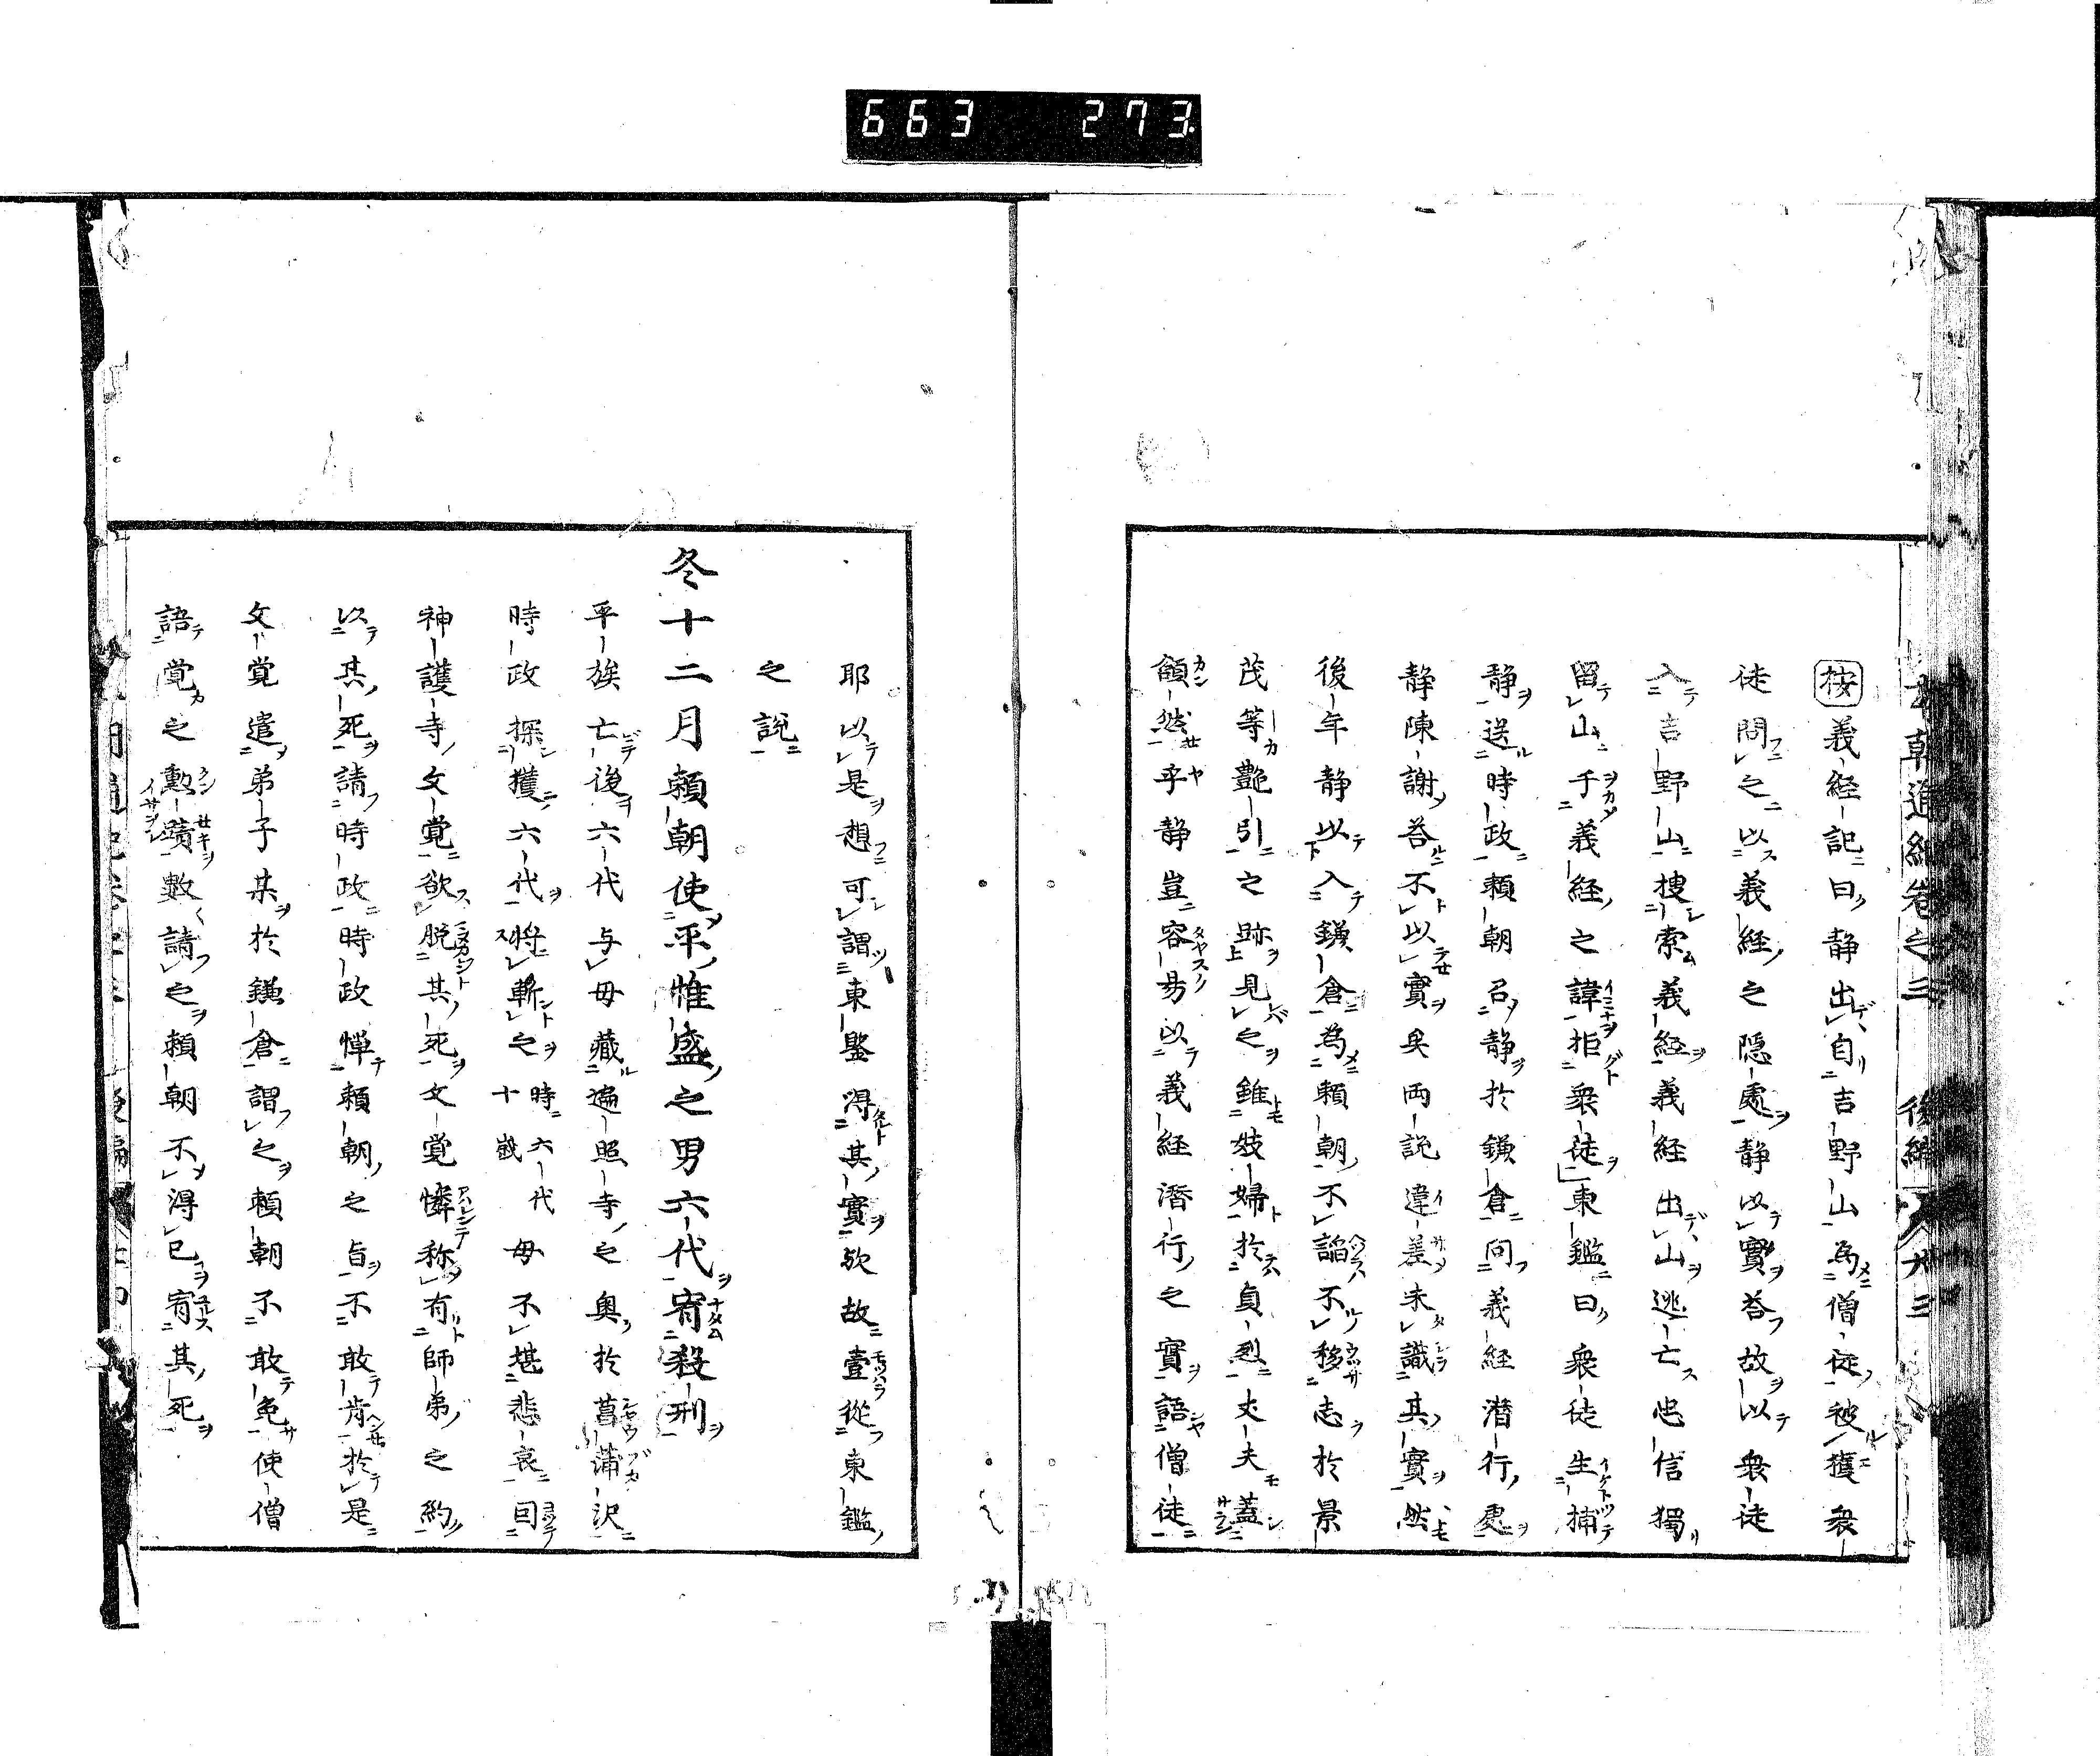 663 273
按義経記曰静出自吉野山為僧徒被獲衆
徒問之以義経之隠處静以實答故以衆徒
入吉野山捜索義経義経出山逃亡忠信獨
留山于義経之諱拒衆徒東鑑曰衆徒生捕
静送時政頼朝召静於鎌倉問義経潜行處
静陳謝答不以實矣両説違差未識其實然
後年静以入鎌倉為頼朝不謟不移志於景
茂等艶引之跡見之雖妓婦於貞烈丈夫蓋
頷然乎静豈容易以義経潜行之實語僧徒
耶以是想可謂東鑒得其實欤故壹從東鑑
之説
冬十二月頼朝使平惟盛之男六代宥殺刑
平族亡後六代与母藏遍照寺之奥於菖蒲沢
時政探獲六代将斬之時六代十歳母不堪悲哀囙
神護寺文覚欲脱其死文覚憐称有師弟之約
以其死請時政時政憚頼朝之旨不敢肯於是
文覚遣弟子某於鎌倉謂之頼朝不敢免使僧
語覚之勲蹟數請之頼朝不得已宥其死